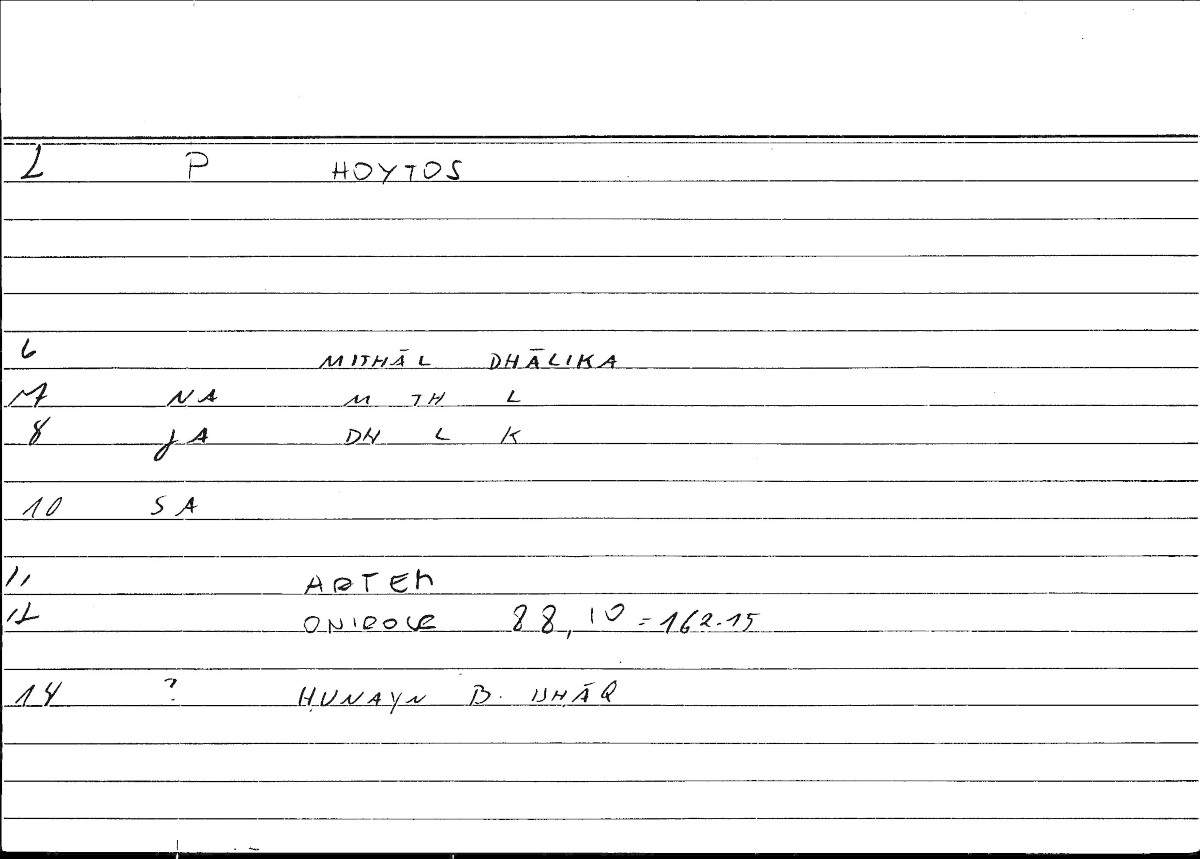 2 P HOYTOS
6 MITHĀL DHĀLIKA
7 NA M TH L
8 JA DH L K
10 SA
11 ARTEM
12 ONIROCR 88,10 = 162.15
14 ? ḤUNAYN B. ISḤĀQ